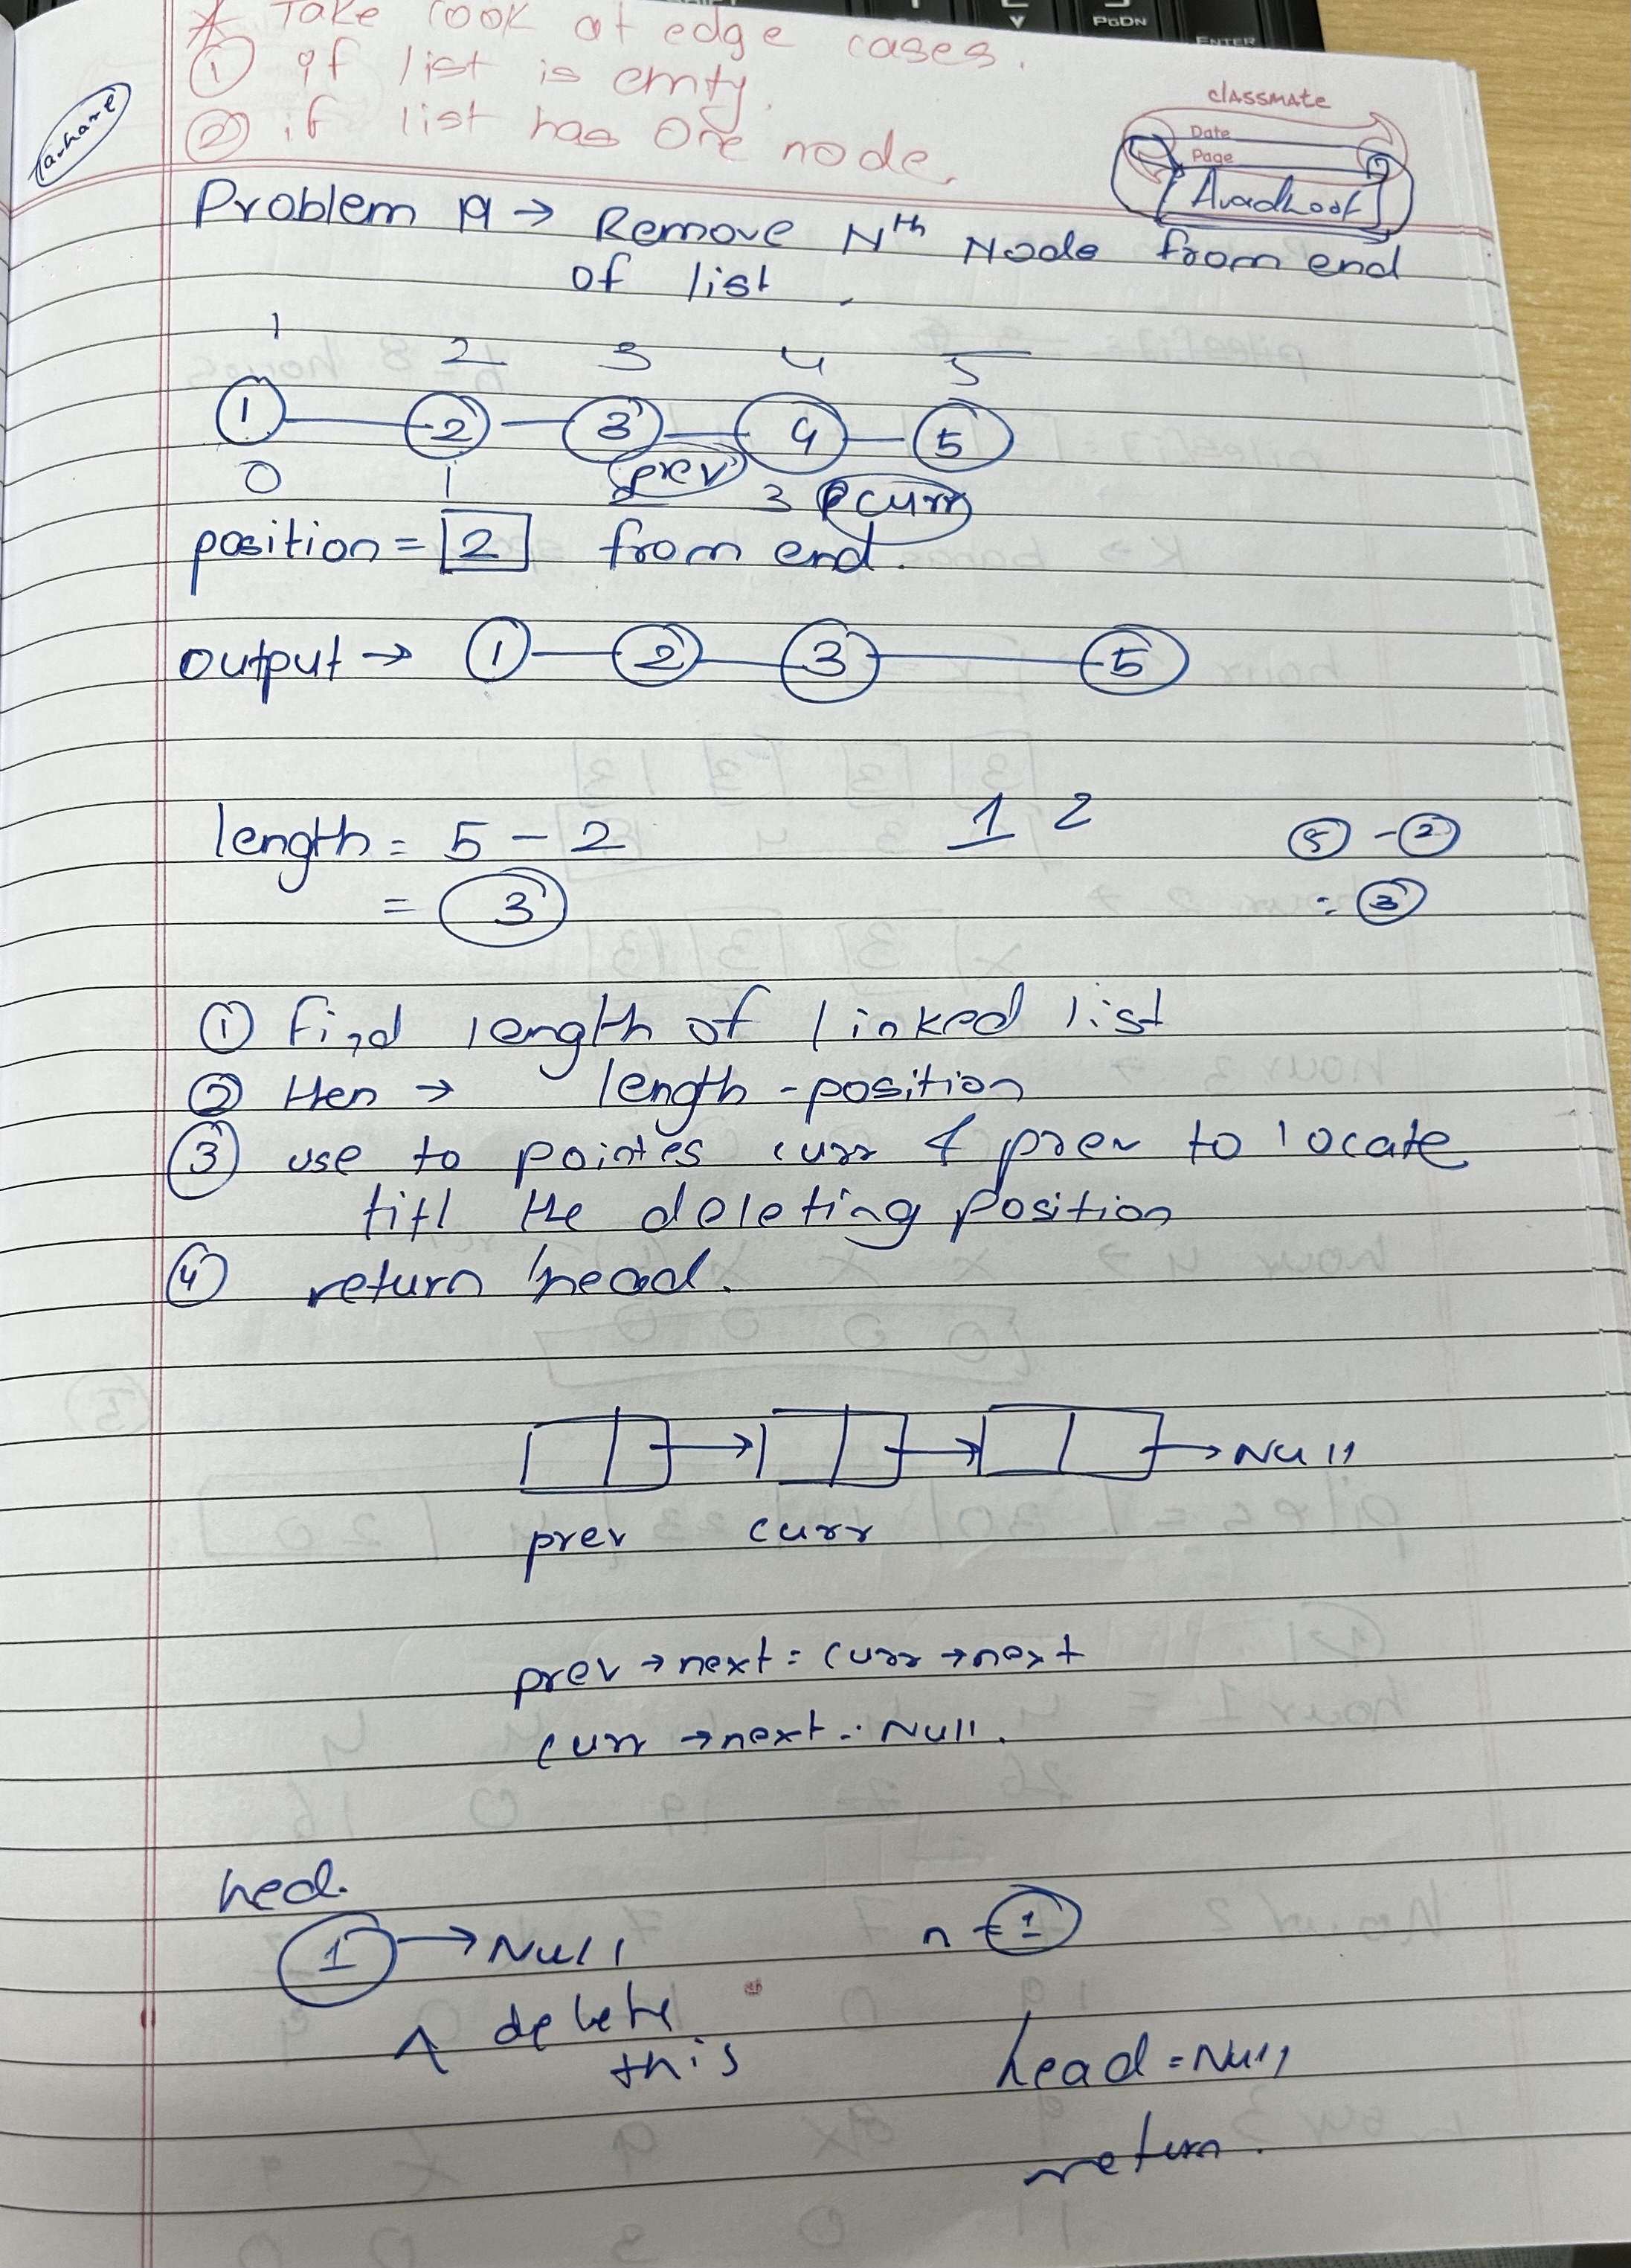 PGDN
ENTER
* Take look at edge cases.
① if list is emty.
② if list has one node.
classmate
Date
Page
Avadhoot
Problem 19 → Remove Nth Node from end
of list.
1 2 3 4 5
1 2 3 4 5
0 1 2 prev 3 curr
position = 2 from end.
output → 1 2 3 5
length = 5 - 2 1 2 5 - 2
= 3 = 3
① find length of linked list
② then → length - position
③ use to pointes curr & prev to locate
till the deleting position
④ return head.
→ Null
prev curr
prev → next = curr → next
curr → next = Null.
hed.
1 → Null n = 1
delete
this
head = Null
return.